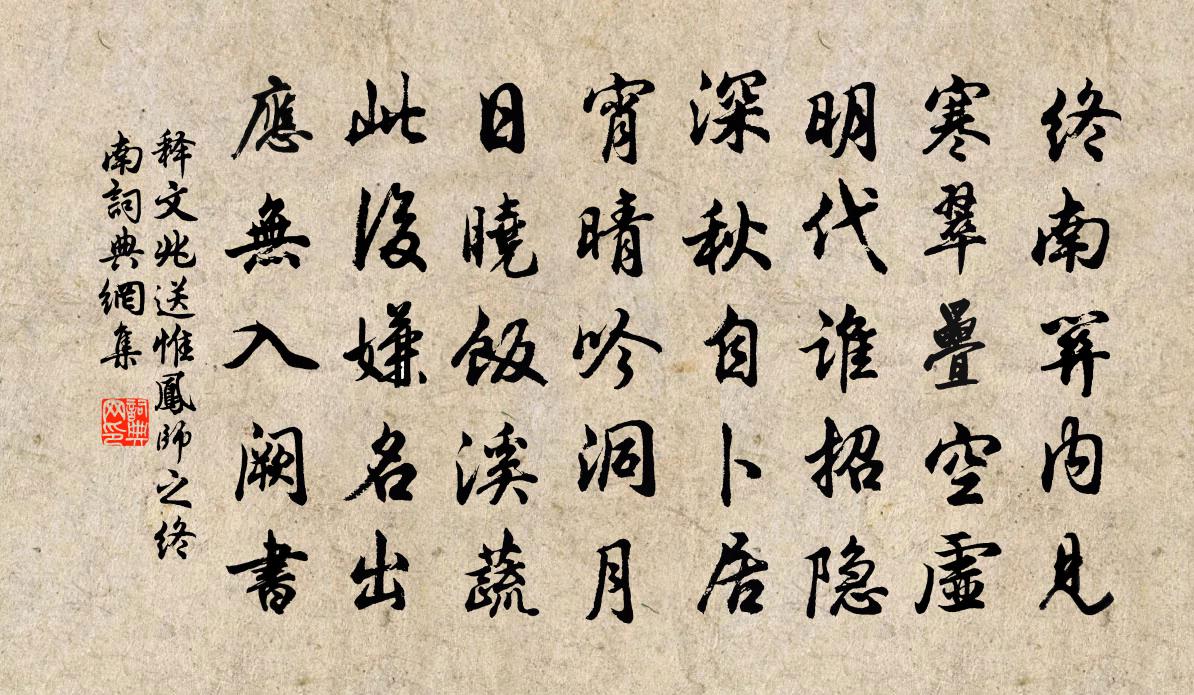 終南関内見
寒翠疊空虛
明代誰招隐
深秋自卜居
宵晴吟洞月
日曉飯溪蔬
此後嫌名出
應無入阙書
释文兆送惟鳳師之終
南詞典網集
詞典
网印